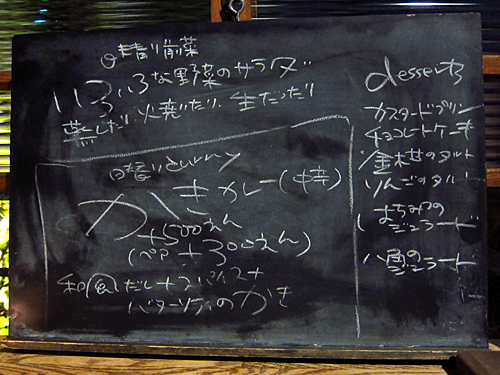 日替り前菜
いろいろな野菜のサラダ
蒸したり 火焼いたり 生だったり
日替り
かきカレー(特)
+500えん
(ペア +300えん)
和風だし+スパイス+
バターソテーのかき
desserts
カスタードプリン
チョコレートケーキ
のタルト
りんごのタルト
はちみつの
ジェラート
八角の
ジェラート